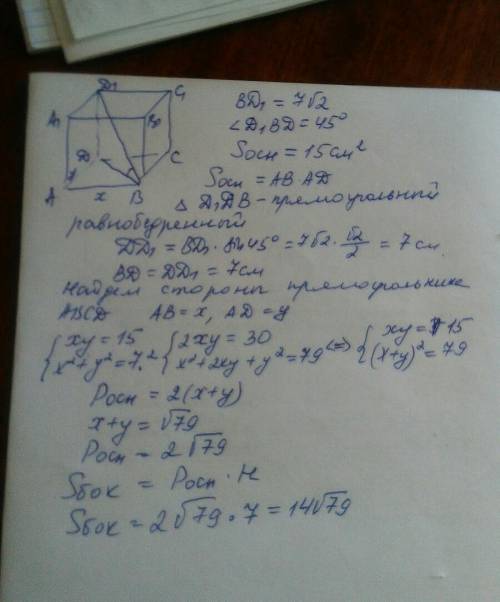 D₁ C₁
A₁ B₁
D C
A x B
y
BD₁ = 7√2
∠D₁BD = 45°
Sосн = 15 см²
Sосн = AB · AD
△ D₁DB – прямоугольный
равнобедренный
DD₁ = BD₁ · sin 45° = 7√2 · √2/2 = 7 см.
BD = DD₁ = 7см
Найдем стороны прямоугольника
ABCD AB = x, AD = y
{ xy = 15 { 2xy = 30 { xy = 15
{ x² + y² = 7² { x² + 2xy + y² = 79 <=> { (x+y)² = 79
Pосн = 2(x+y)
x+y = √79
Pосн = 2√79
Sбок = Pосн · H
Sбок = 2√79 · 7 = 14√79